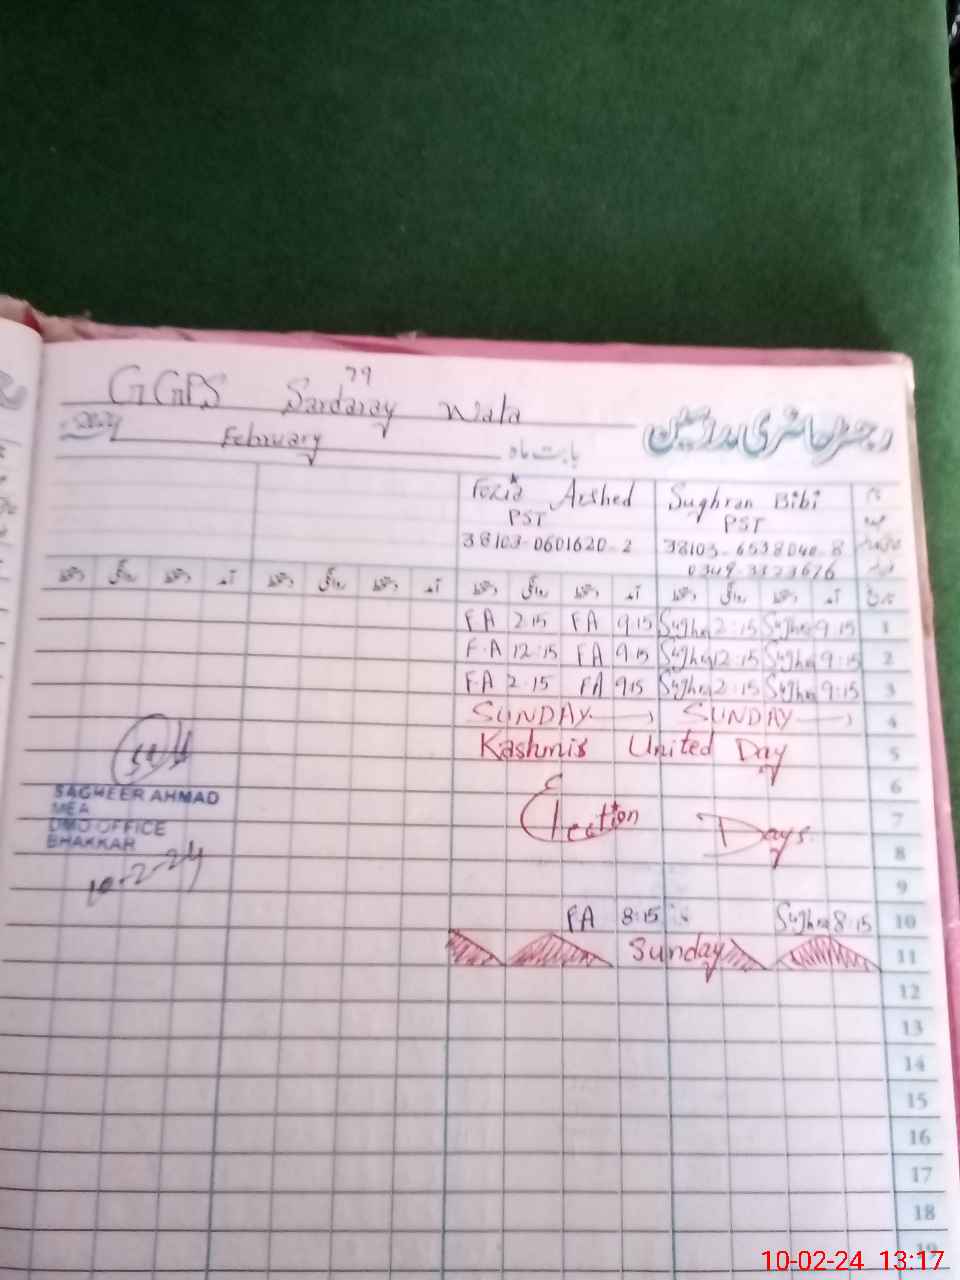 GGPS Sardaray Wala
79
رجسٹر حاضری مدرسین
2024
February
بابت ماہ
Fozia Arshed Sughran Bibi نام
PST PST عہدہ
38103-0601620-2 38103-6538040-8
0349-3823676
دستخط روانگی دستخط آمد دستخط روانگی دستخط آمد دستخط روانگی دستخط آمد دستخط روانگی دستخط آمد تاریخ
FA 2:15 FA 9:15 Sughra 2:15 Sughra 9:15 1
F.A 12:15 FA 9:15 Sughra 12:15 Sughra 9:15 2
FA 2:15 FA 9:15 Sughra 2:15 Sughra 9:15 3
SUNDAY SUNDAY 4
Kashmir United Day 5
6
Election Days. 7
8
SAGHEER AHMAD
MEA
DMO OFFICE
BHAKKAR
10-2-24
9
FA 8:15 Sughra 8:15 10
Sunday 11
12
13
14
15
16
17
18
19
10-02-24 13:17